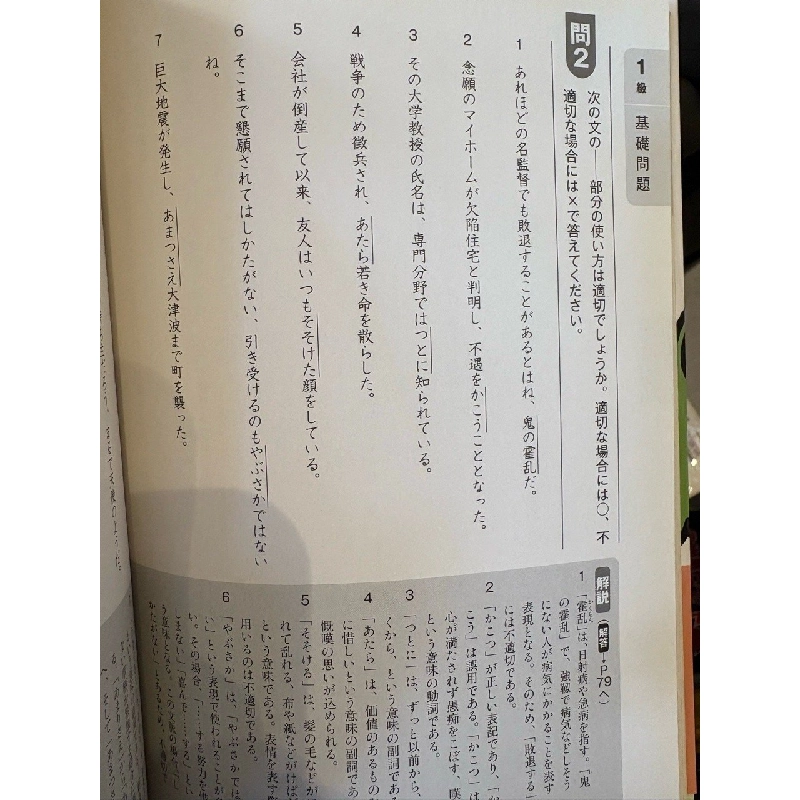 1級 基礎問題
問2
次の文の―部分の使い方は適切でしょうか。適切な場合には○、不
適切な場合には×で答えてください。
1 あれほどの名監督でも敗退することがあるとはね、鬼の霍乱だ。
2 念願のマイホームが欠陥住宅と判明し、不遇をかこうこととなった。
3 その大学教授の氏名は、専門分野ではつとに知られている。
4 戦争のため徴兵され、あたら若き命を散らした。
5 会社が倒産して以来、友人はいつもそそけた顔をしている。
6 そこまで懇願されてはしかたがない、引き受けるのもやぶさかではない
ね。
7 巨大地震が発生し、あまつさえ大津波まで町を襲った。
解説(解答→79へ)
1 「霍乱」は、日射病や急病を指す。「鬼
の霍乱」で、強靱で病気などしそう
にない人が病気にかかることを表す
表現となる。そのため、「敗退する」
には不適切である。
2 「かこつ」が正しい表記であり、「か
こう」は誤用である。「かこつ」は
心が満たされず愚痴をこぼす、嘆
という意味の動詞である。
3 「つとに」は、ずっと以前から、
くから、という意味の副詞であ
4 「あたら」は、価値のあるもの
に惜しいという意味の副詞であ
慨嘆の思いが込められる。
5 「そそける」は、髪の毛などが
れて乱れる、布や紙などがけば
という意味である。表情を表す
用いるのは不適切である。
6 「やぶさか」は、「やぶさかでは
い」という表現で使われることが
い。その場合、「……する努力を惜
こまない」「喜んで……する」とい
う意味となる。